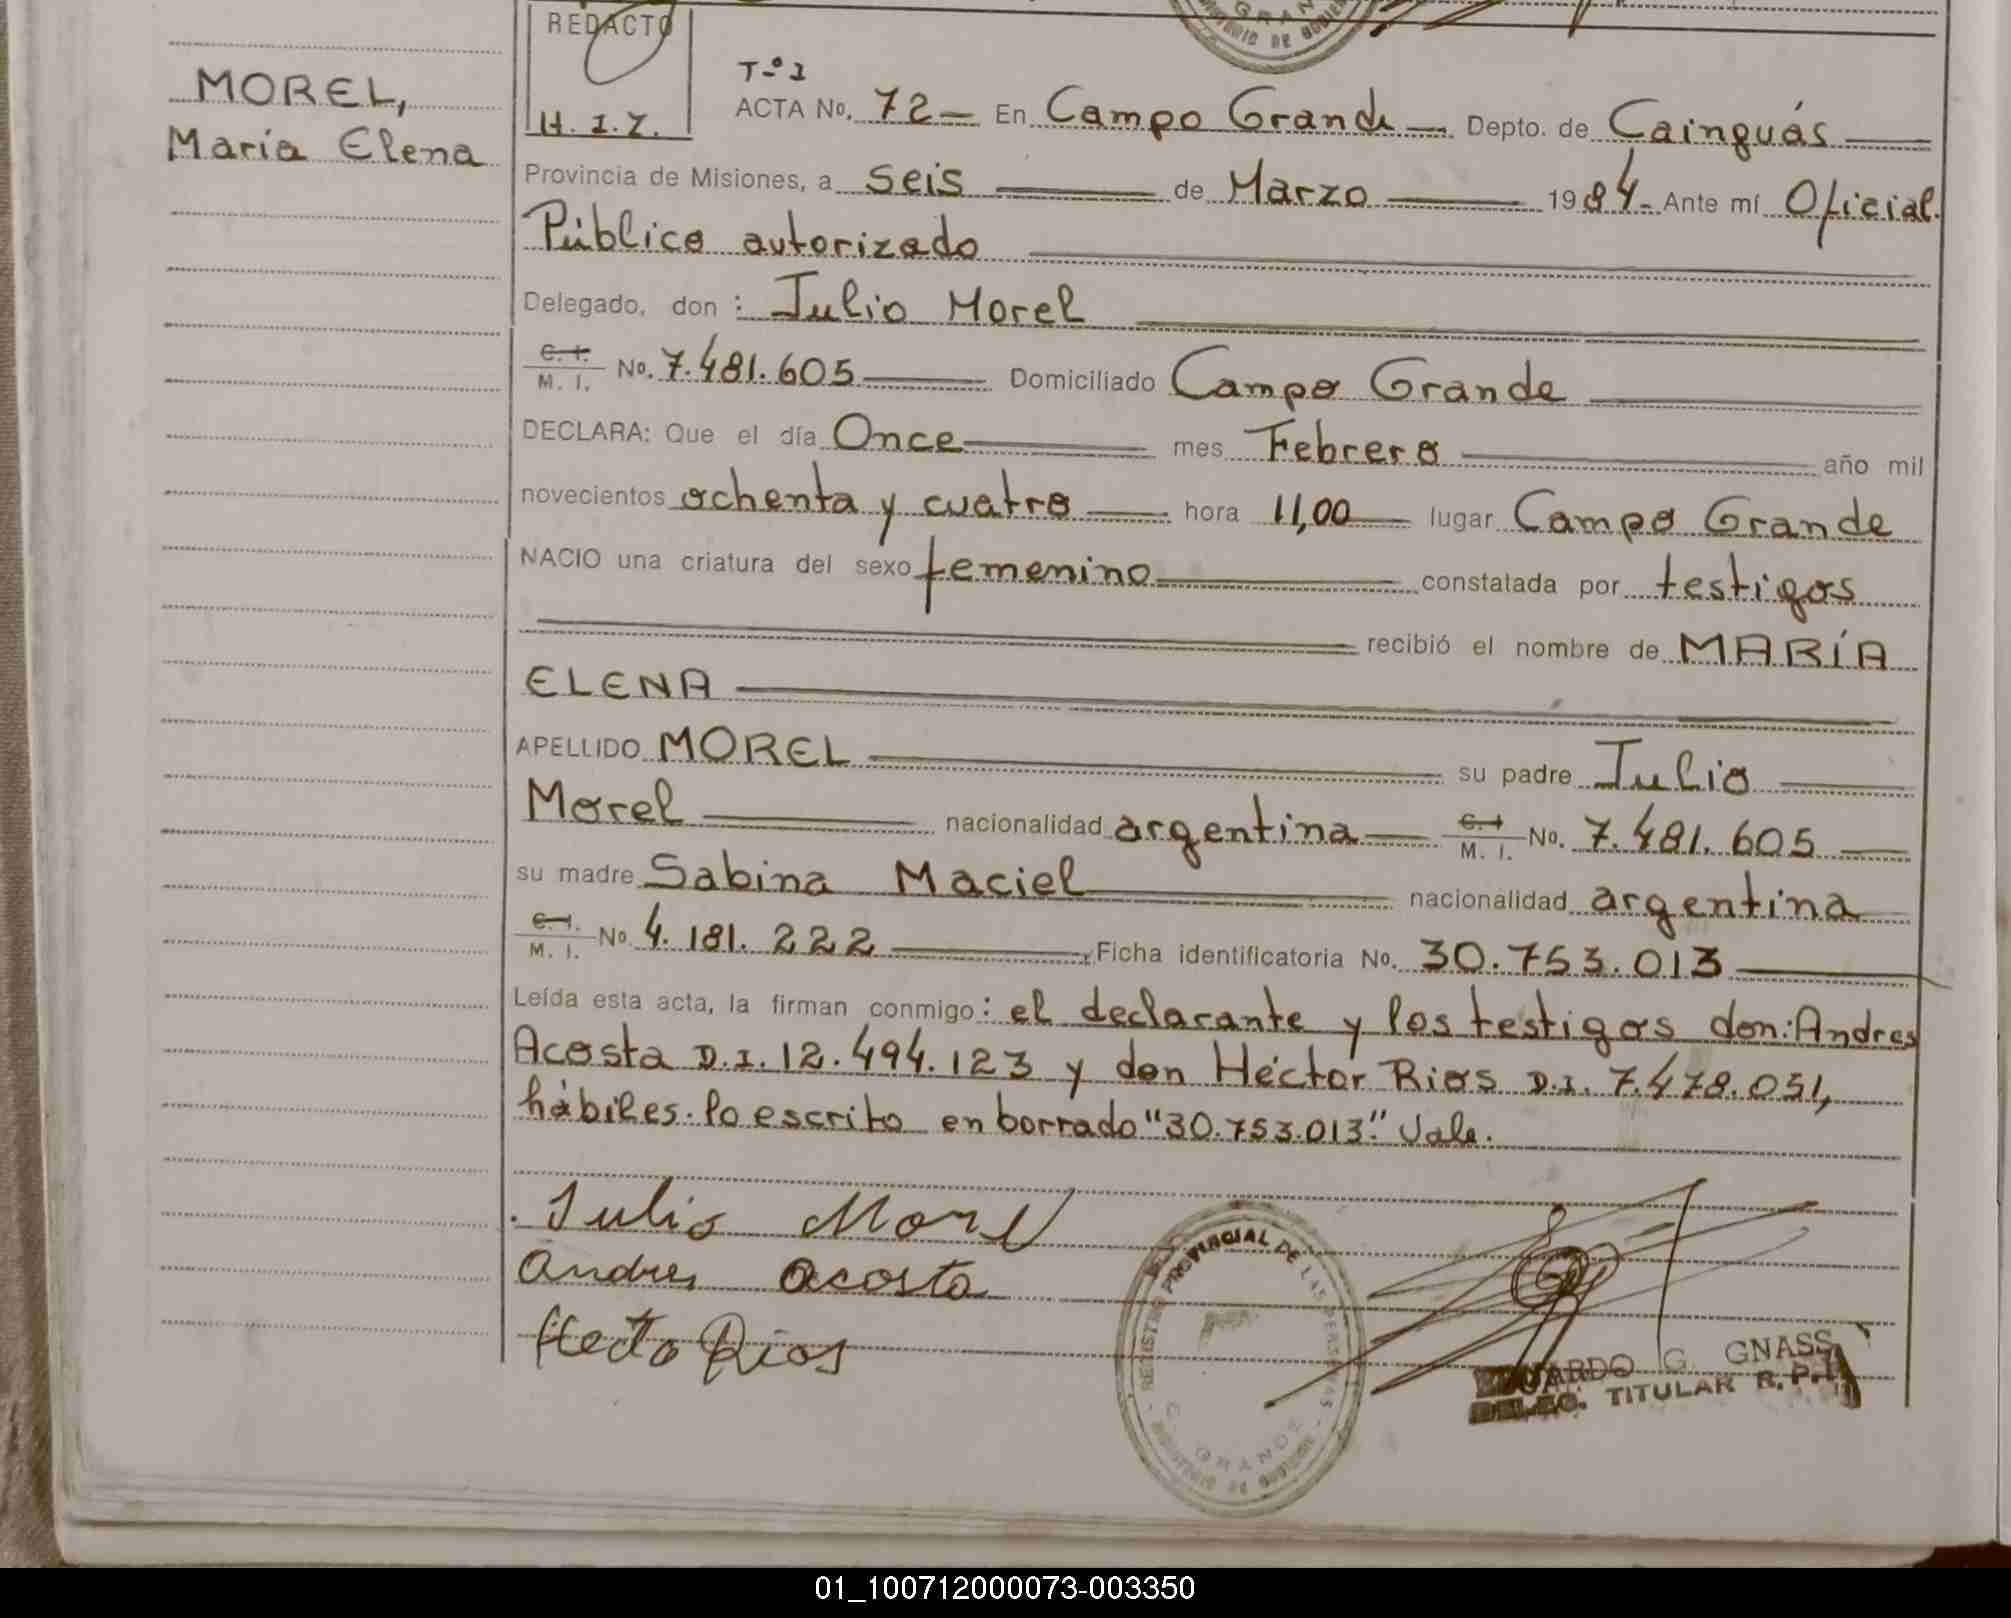 REDACTO
H. I. Z.
MOREL,
María Elena
T-º I
ACTA No. 72 — En Campo Grande — Depto. de Cainguás
Provincia de Misiones, a seis de Marzo 1984 - Ante mí Oficial
Público autorizado
Delegado, don: Julio Morel
C. I. M. I. No. 7.481.605 Domiciliado Campo Grande
DECLARA: Que el día Once mes Febrero año mil
novecientos ochenta y cuatro hora 11,00 lugar Campo Grande
NACIO una criatura del sexo femenino constatada por testigos
recibió el nombre de MARÍA
ELENA
APELLIDO MOREL su padre Julio
Morel nacionalidad argentina C. I. M. I. No. 7.481.605
su madre Sabina Maciel nacionalidad argentina
C. I. M. I. No. 4.181.222 Ficha identificatoria No. 30.753.013
Leída esta acta, la firman conmigo: el declarante y los testigos don: Andres
Acosta D.I. 12.494.123 y don Héctor Rios D.I. 7.478.051,
hábiles. lo escrito en borrado "30.753.013." Vale.
Julio Morel
Andres Acosta
Hecto Rios
REGISTRO PROVINCIAL DE LAS PERSONAS
C. GRANDE
MINISTERIO DE GOBIERNO
EDUARDO G. GNASS
DELEG. TITULAR R. P. P.
01_100712000073-003350